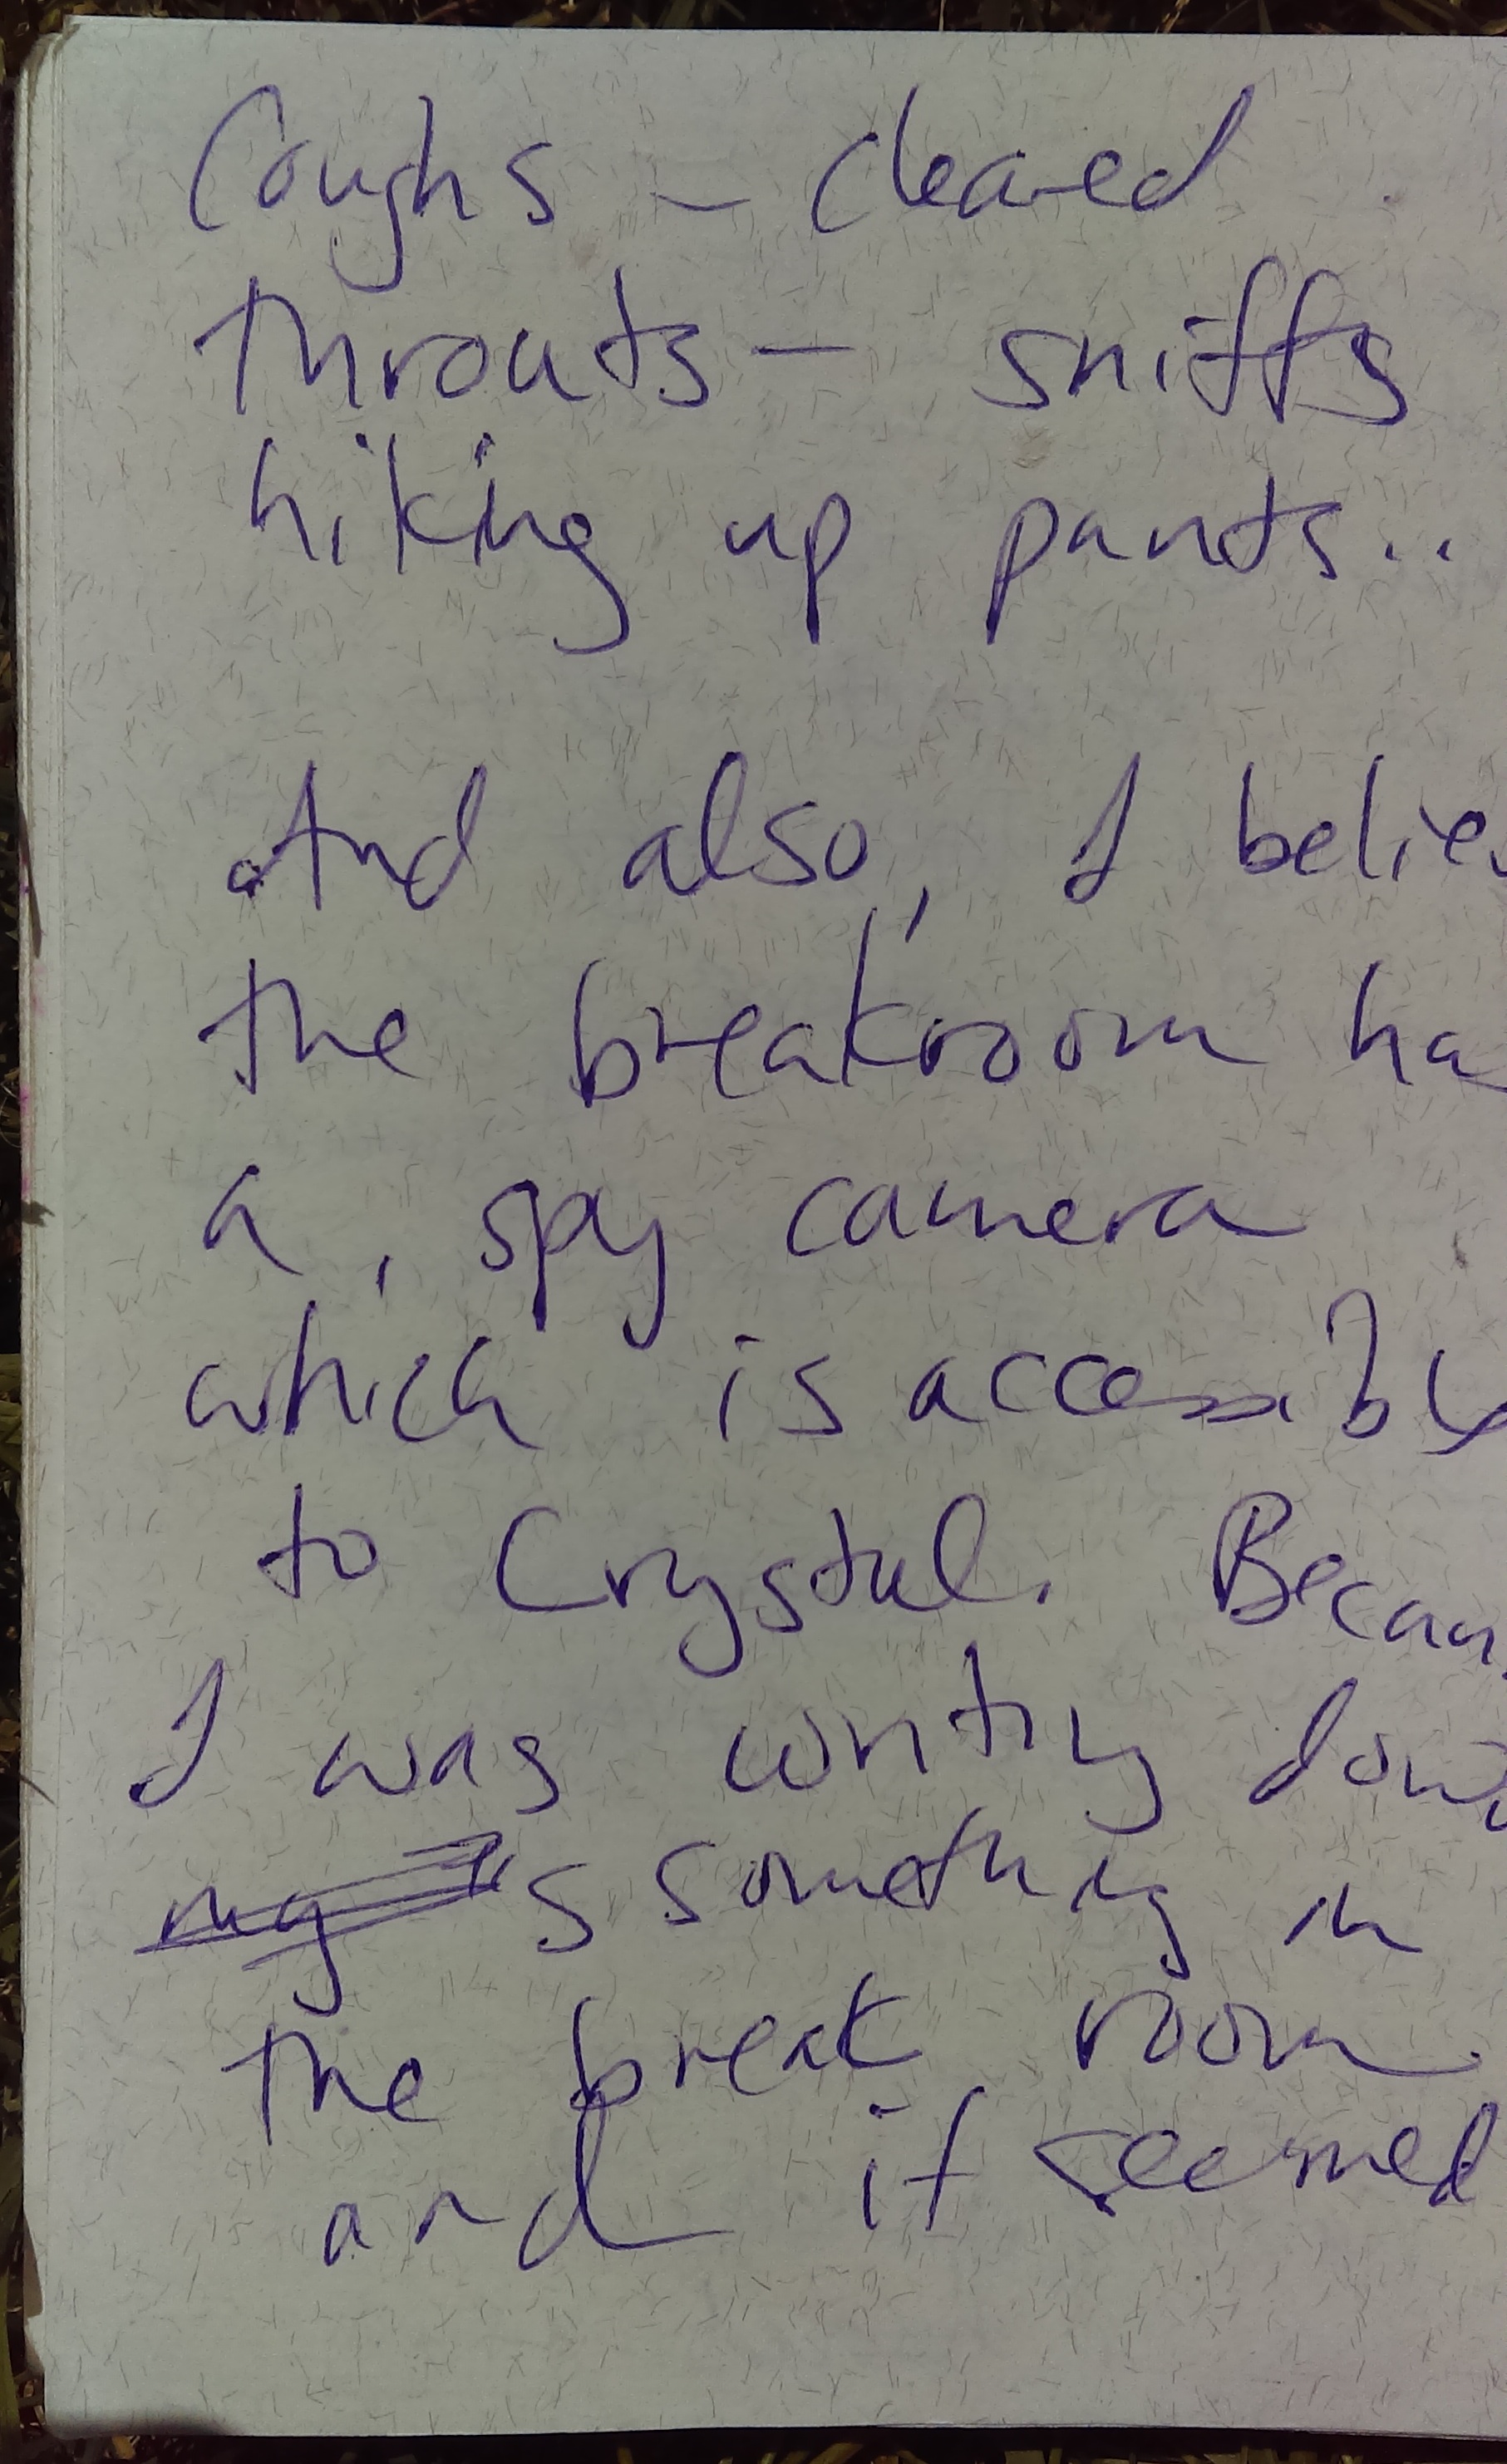 Coughs - Cleared
throats - sniffs
hiking up pants..
And also, I belie
the breakroom ha
a, spy camera
which is accessible
to Crystal. Becau
I was writing down
my s something in
the break room
and it seemed